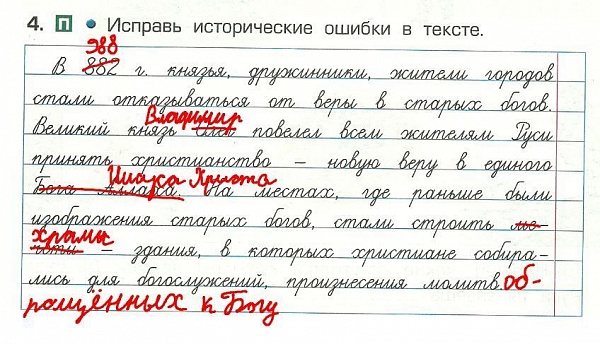 4. П • Исправь исторические ошибки в тексте.
988
В 882 г. князья, дружинники, жители городов
стали отказываться от веры в старых богов.
Владимир
Великий князь Олег повелел всем жителям Руси
принять христианство – новую веру в единого
Иисуса Христа
Бога Аллаха. На местах, где раньше были
изображения старых богов, стали строить ме-
храмы
чети – здания, в которых христиане собира-
лись для богослужений, произнесения молитв. об-
ращённых к Богу